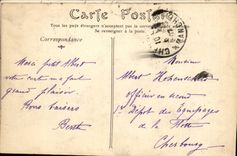 Carte Postale
Tous les pays étrangers n'acceptent pas la correspondance
Se renseigner à la poste.
Correspondance
Mon petit Albert
votre carte m'a fait
grand plaisir.
Bons baisers
Berthe
Monsieur
Albert
officier en second
1er Dépôt des Équipages
de la Flotte
Cherbourg